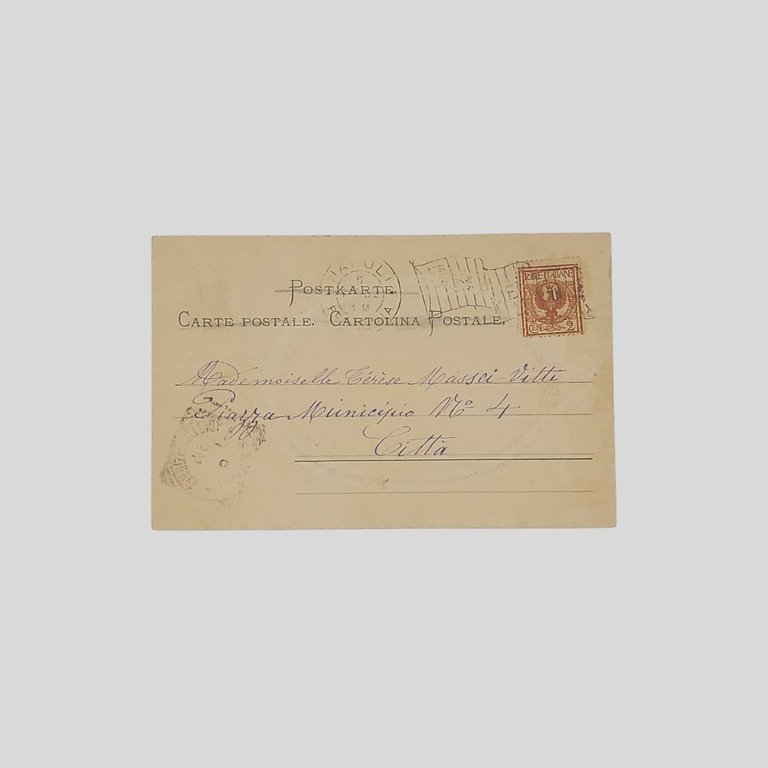 NAPOLI
POSTE ITALIANE
CEN 2
POSTKARTE.
CARTE POSTALE. CARTOLINA POSTALE.
Mademoiselle Térèse Massei-Vitti
Piazza Municipio No 4
Città